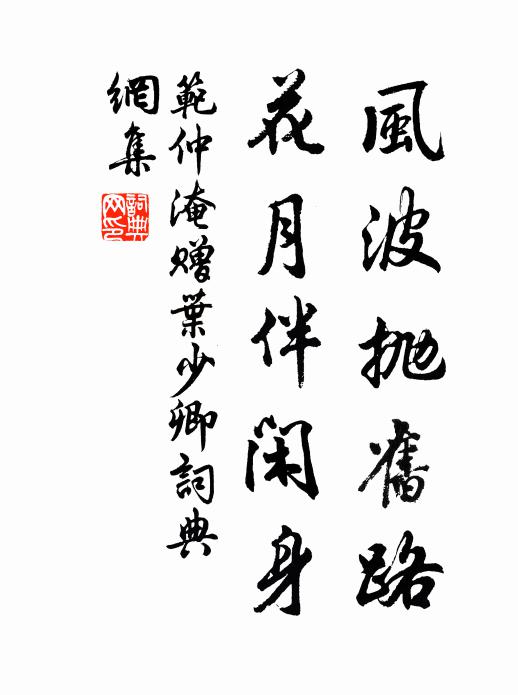 風波抛舊路
花月伴閑身
範仲淹贈葉少卿詞典
網集
詞典
网印